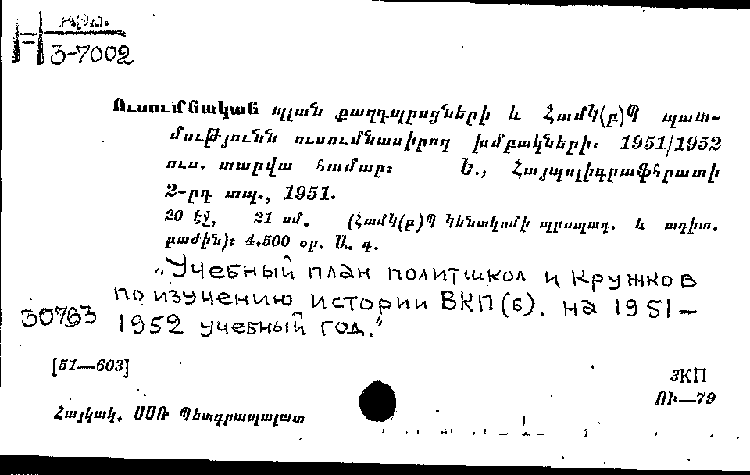 Արմ.
Н 3-7002
Ուսումնական պլան քաղդպրոցների և Համկ(բ)Պ պատ-
մությունն ուսումնասիրող խմբակների։ 1951/1952
ուս. տարվա համար։ Ե., Հայպոլիգրաֆհրատի
2-րդ տպ., 1951.
20 էջ, 21 սմ. (Համկ(բ)Պ Կենտկոմի պրոպագ. և ագիտ.
բաժին)։ 4.500 օր. Ա. գ.
„Учебный план политшкол и кружков
по изучению истории ВКП(б). на 1951–
30763 1952 учебный год."
[51—603]
3КП
ՈՒ—79
Հայկակ. ՍՍՌ Պետգրապալատ